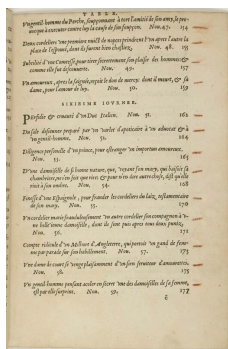 TABLE.
Vn gentil-homme du Perche, souspçonnant à tort l'amitié de son amy, le pro-
uoque à executer contre luy la cause de son souspçon. Nou. 47. 154
Deux cordeliers vne premiere nuict de nopces prindrent l'vn apres l'autre la
place de l'espousé, dont ils furent bien chastiez. Nou. 48. 155
Subtilité d'vne Comtesse pour tirer secrettement son plaisir des hommes &
comme elle fut descouuerte. Nou. 49. 157
Vn amoureux, apres la seignée, reçoit le don de mercy: dont il meurt, & sa
dame, pour l'amour de luy. Nou. 50. 159
SIXIESME IOVRNEE.
Perfidie & cruauté d'vn Duc Italien. Nou. 51. 162
Du sale desieuner preparé par vn varlet d'apoticaire à vn aduocat & à
vn gentil-homme. Nou. 52. 164
Diligence personnelle d'vn prince, pour estranger vn importun amoureux.
Nou. 53. 165
D'vne damoiselle de si bonne nature, que, voyant son mary, qui baisoit sa
chambriere, ne s'en feit que rire: & pour n'en dire autre chose, dist qu'elle
rioit à son ombre. Nou. 54. 168
Finesse d'vne Espaignole, pour frauder les cordeliers du laiz testamentaire
de son mary. Nou. 55. 170
Vn cordelier marie frauduleusement vn autre cordelier son compagnon à v-
ne belle ieune damoiselle, dont ils sont puis apres tous deux punis.
Nou. 56. 171
Compte ridicule d'vn Millort d'Angleterre, qui portoit vn gand de fem-
me par parade sur son habillement. Nou. 57. 173
Vne dame de court se venge plaisamment d'vn sien seruiteur d'amourettes.
Nou. 58. 175
Vn gentil-homme pensant acoler en secret vne des damoiselles de sa femme,
est par elle surprins. Nou. 59. 177